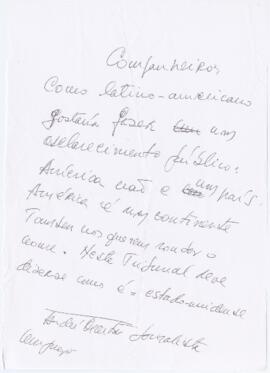 Companheiros
Como latino-americano
gostaria fazer um
esclarecimento público:
América não e um país.
América é um continente
Tambem nos querem roubar o
nome. Neste Tribunal deve
dizerse como é: estado-unidense
Jornalista